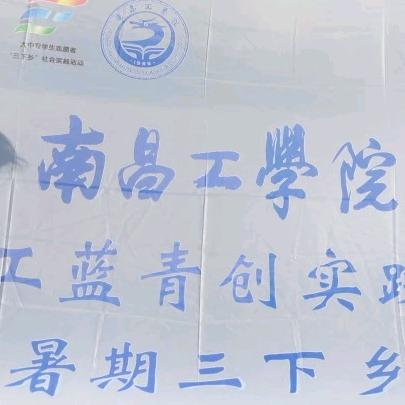 大中专学生志愿者
“三下乡”社会实践活动
南昌工學院
工蓝青创实践
暑期三下乡